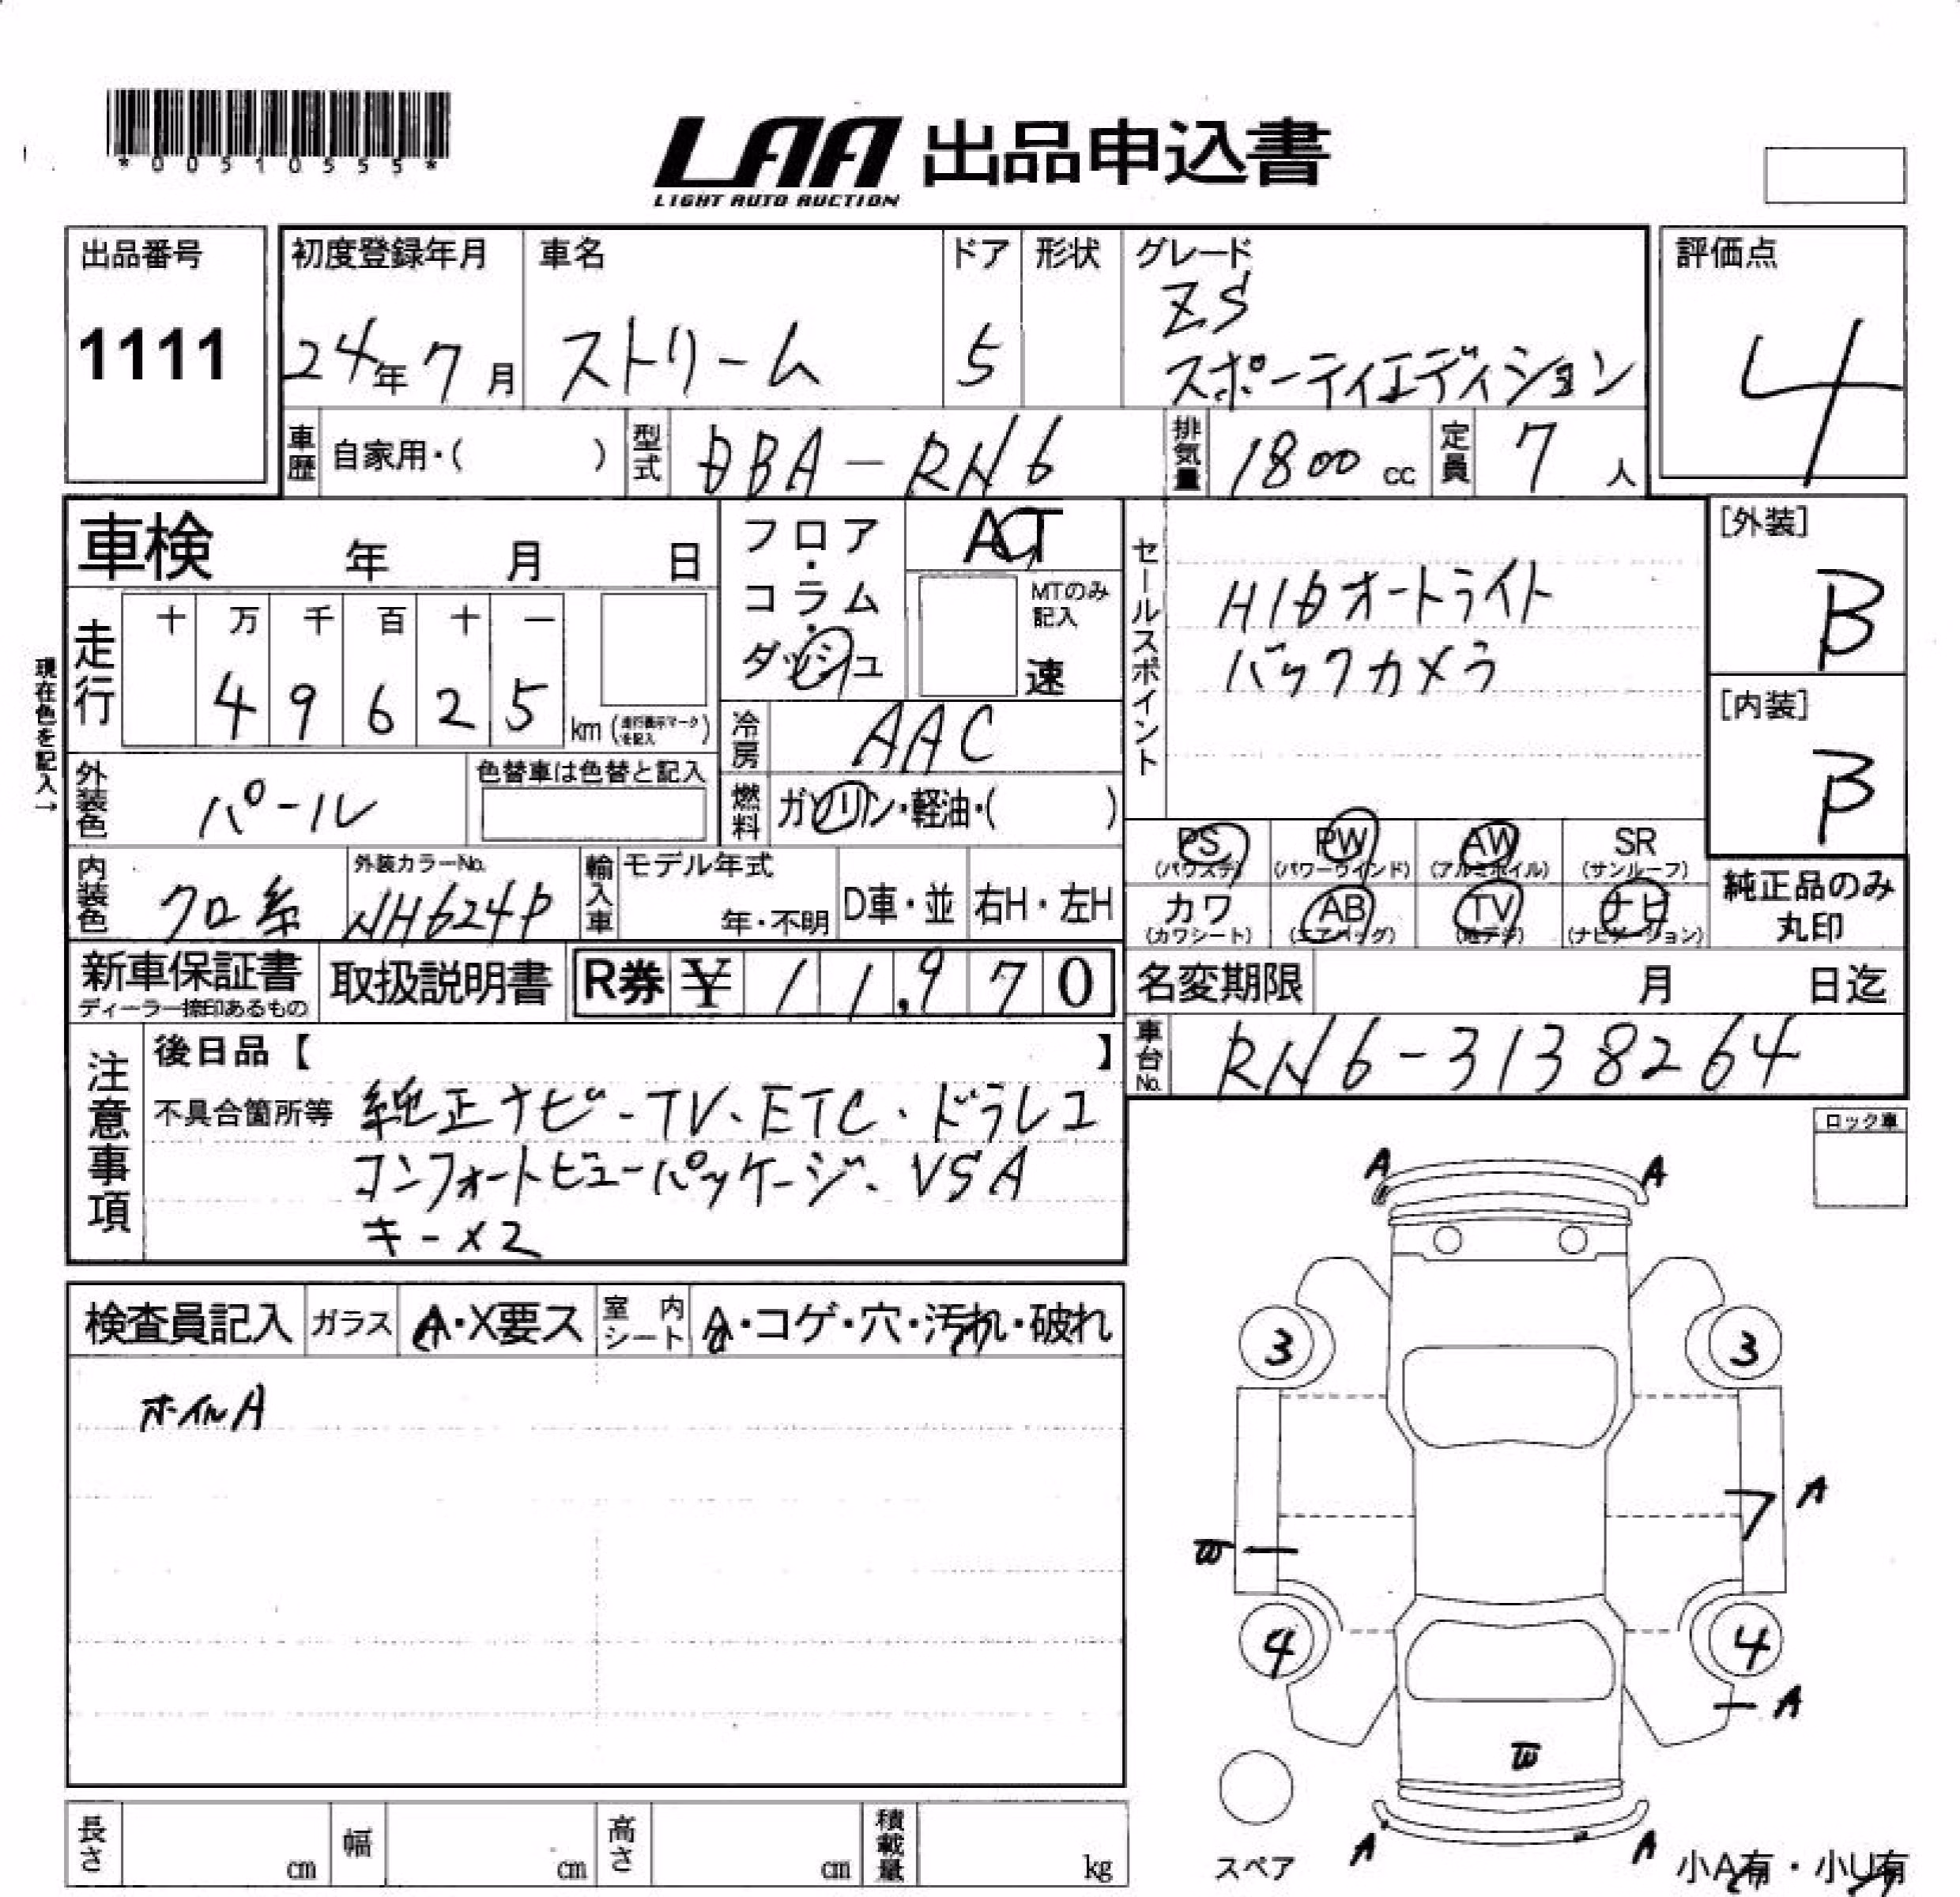 *00510555*
LAA 出品申込書
LIGHT AUTO AUCTION
出品番号
1111
初度登録年月
24年7月
車名
ストリーム
ドア
5
形状
グレード
ZS
スポーティエディション
評価点
4
車歴
自家用・( )
型式
DBA-RN6
排気量
1800 cc
定員
7 人
車検 年 月 日
フロア・コラム・ダッシュ
AT
MTのみ記入
速
セールスポイント
HIDオートライト
バックカメラ
[外装]
B
[内装]
B
現在色を記入→
走行
十 万 千 百 十 一
4 9 6 2 5
km (走行表示マークを記入)
冷房
AAC
燃料
ガソリン・軽油・( )
外装色
パール
色替車は色替と記入
内装色
クロ系
外装カラーNo.
NH624P
輸入車
モデル年式
年・不明
D車・並
右H・左H
PS
(パワステ)
PW
(パワーウィンド)
AW
(アルミホイル)
SR
(サンルーフ)
カワ
(カワシート)
AB
(エアバッグ)
TV
(地デジ)
ナビ
(ナビゲーション)
純正品のみ
丸印
新車保証書
ディーラー捺印あるもの
取扱説明書
R券 ¥ 11,970
名変期限 月 日迄
車台No.
RN6-3138264
注意事項
後日品【 】
不具合箇所等
純正ナビ-TV、ETC・ドラレコ
コンフォートビューパッケージ、VSA
キー×2
ロック車
検査員記入
ガラス
A・X要ス
室内シート
A・コゲ・穴・汚れ・破れ
ホイルA
A A
3 3
A
W
4 4
A
W
A A
スペア
小A有・小U有
長さ cm
幅 cm
高さ cm
積載量 kg